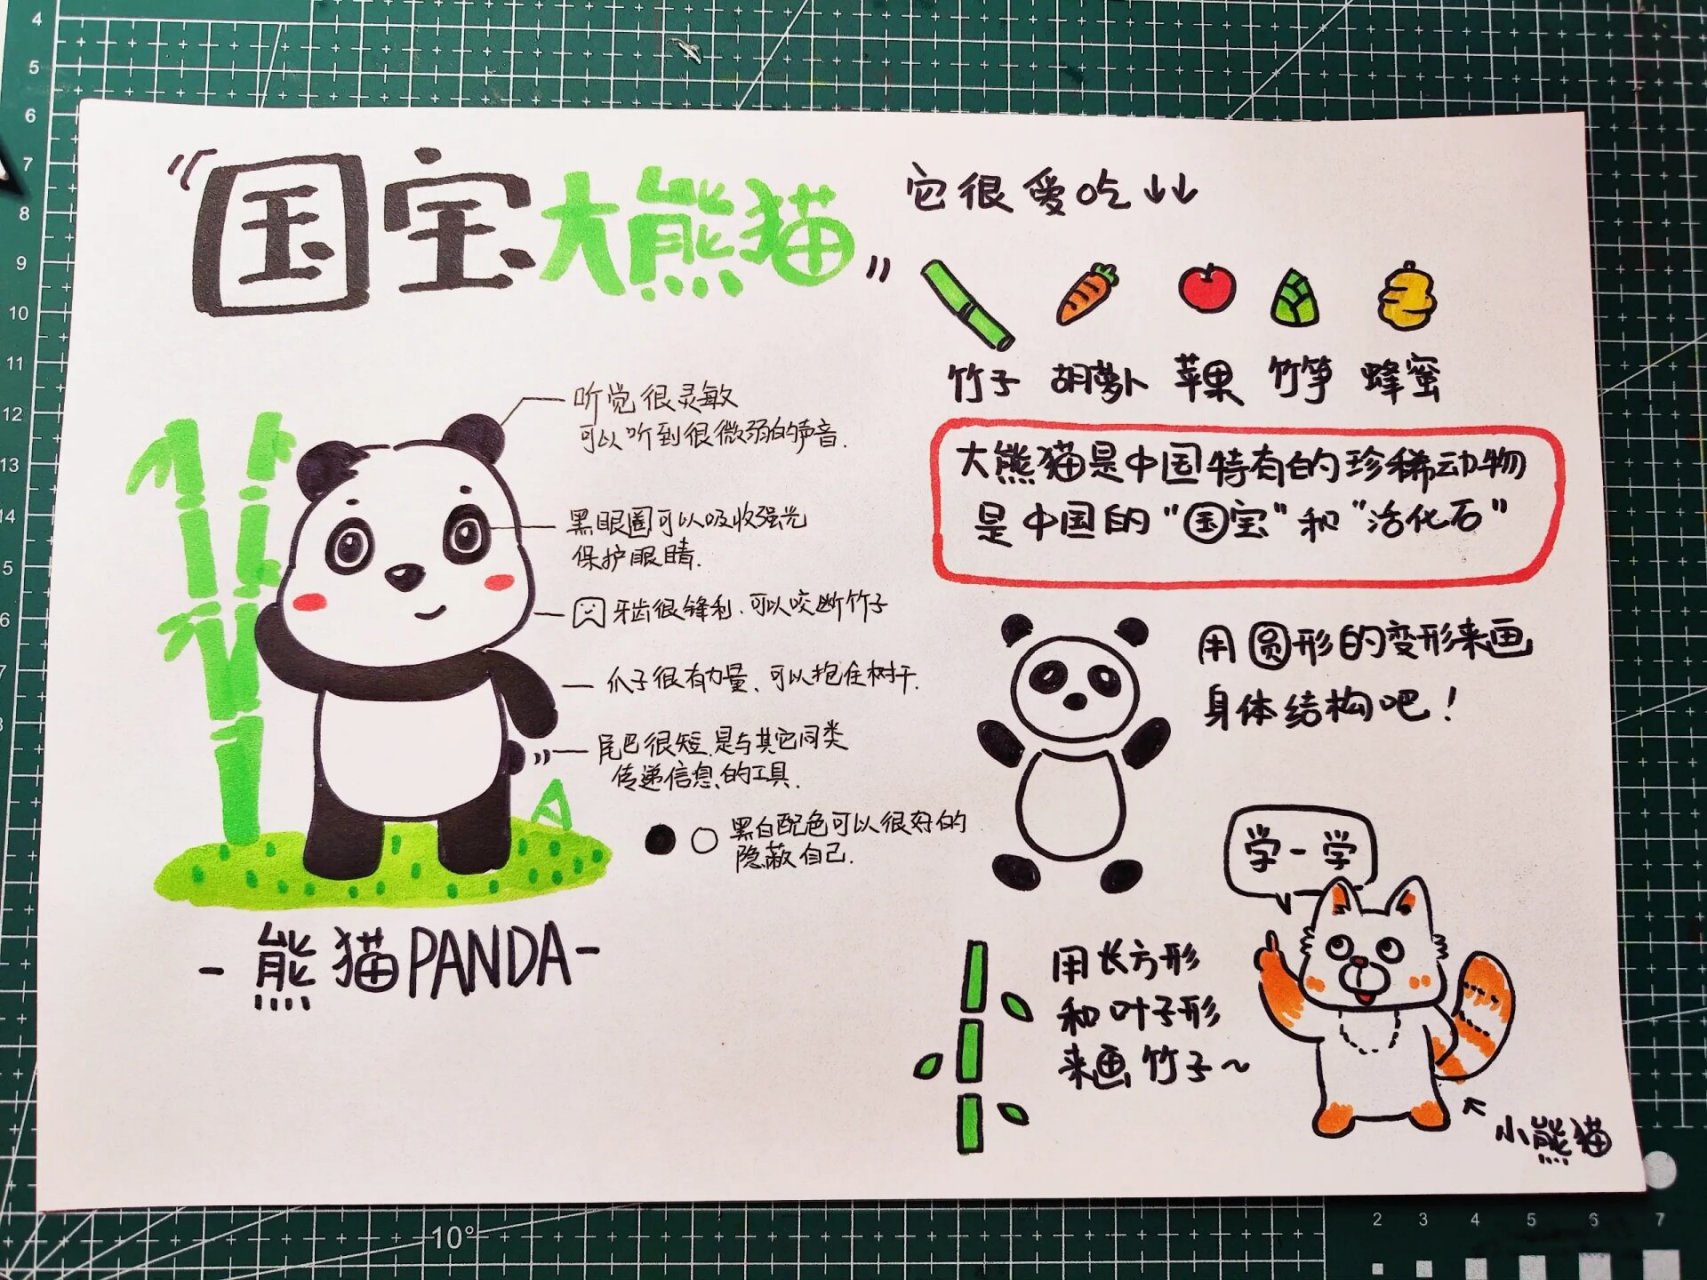 "国宝大熊猫"
它很爱吃↓↓
竹子 胡萝卜 苹果 竹笋 蜂蜜
大熊猫是中国特有的珍稀动物
是中国的“国宝”和“活化石”
听觉很灵敏
可以听到很微弱的声音.
黑眼圈可以吸收强光
保护眼睛.
牙齿很锋利.可以咬断竹子
爪子很有力量、可以抱住树干.
尾巴很短.是与其它同类
传递信息的工具.
黑白配色可以很好的
隐蔽自己.
-熊猫PANDA-
用圆形的变形来画
身体结构吧!
学一学
用长方形
和叶子形
来画竹子~
小熊猫
4
5
6
7
8
9
10
11
12
13
14
5
6
7
8
9
10
11
10°
2 3 4 5 6 7